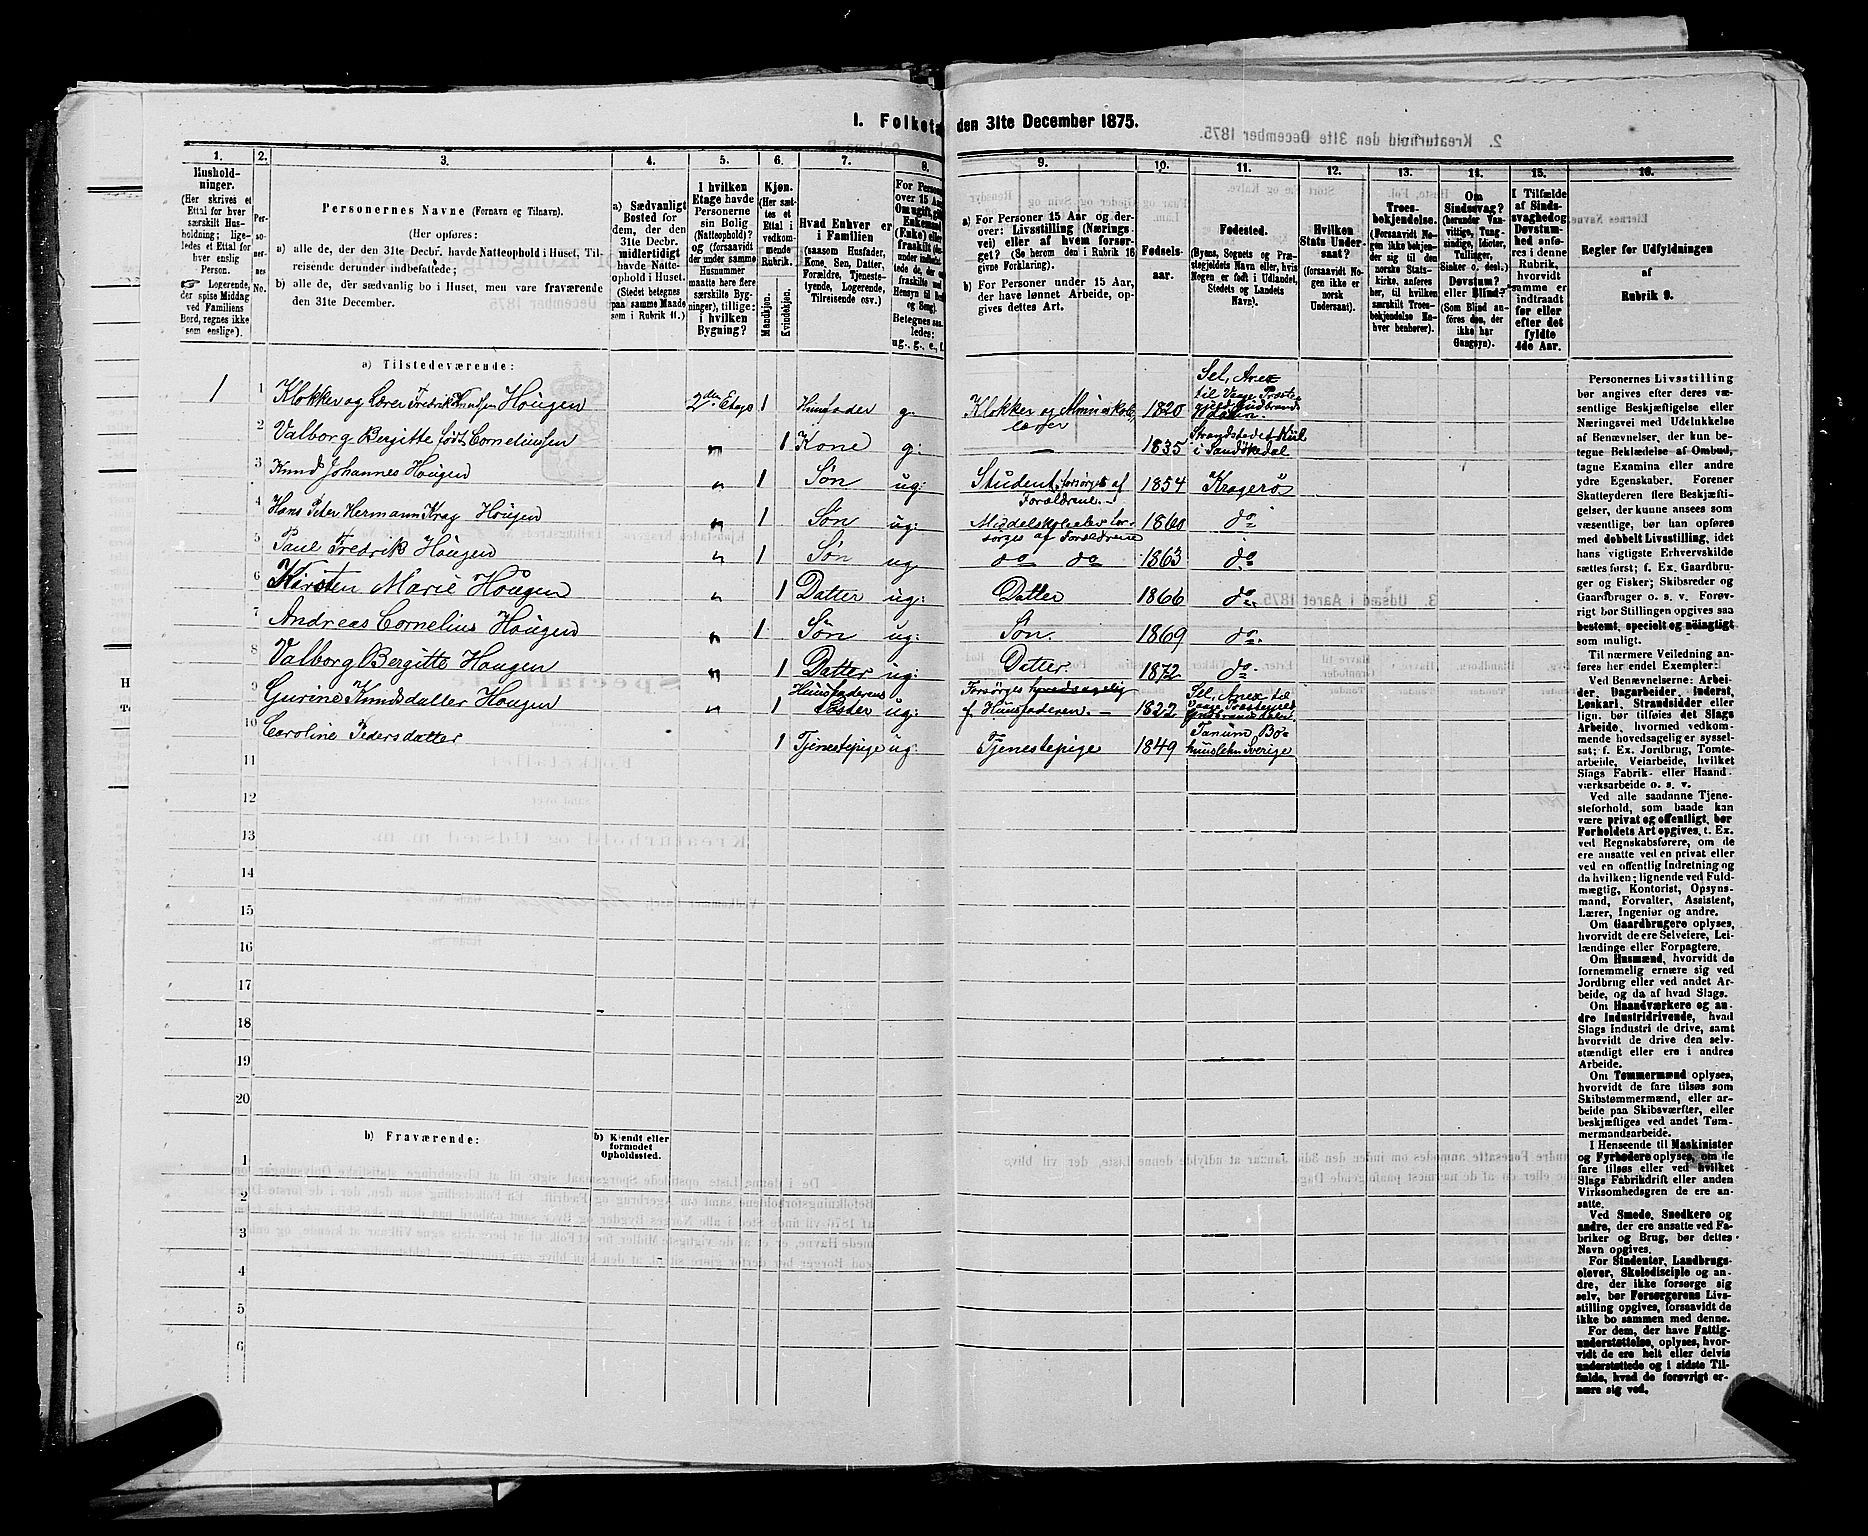 I. Folketæ
den 31te December 1875.
1.
Hushold-
ninger.
(Her skrives et
Ettal for hver
særskilt Hus-
holdning; lige-
ledes et Ettal for
hver enslig
Person.
Logerende,
der spise Middag
ved Familiens
Bord, regnes ikke
som enslige).
2.
Per-
so-
nernes
No.
3.
Personernes Navne (Fornavn og Tilnavn).
(Her opføres:
a) alle de, der den 31te Decbr. havde Natteophold i Huset, Til-
reisende derunder indbefattede;
b) alle de, der sædvanlig bo i Huset, men vare fraværende
den 31te December.
4.
a) Sædvanligt
Bosted for
dem, der den
31te Decbr.
midlertidigt
havde Natte-
ophold i Huset.
(Stedet betegnes
paa samme Maade
som i Rubrik 11.)
5.
I hvilken
Etage havde
Personerne
sin Bolig
(Natteophold)?
og (forsaavidt
der under samme
Husnummer
maatte høre flere
særskilte Byg-
ninger), tillige:
i hvilken
Bygning?
6.
Kjøn.
(Her sæt-
tes et
Ettal i
vedkom-
mende
Rubrik.
Mandkjøn.
Kvindekjøn.
7.
Hvad Enhver er
i Familien
(saasom Husfader,
Kone, Søn, Datter,
Forældre, Tjeneste-
tyende, Logerende,
Tilreisende osv.)
8.
For Person
over 15 Aar
Om ugift, gift
Enkemand
(Enke) eller
fraskilt
Betegnes saa-
ledes:
ug., g., e., f.
9.
a) For Personer 15 Aar og der-
over: Livsstilling (Nærings-
vei) eller af hvem forsør-
get? (Se herom den i Rubrik 16
givne Forklaring).
b) For Personer under 15 Aar,
der have lønnet Arbeide, op-
gives dettes Art.
10.
Fødsels-
aar.
11.
Fødested.
(Byens, Sognets og Præ-
stegjeldets Navn eller, hvis
Nogen er født i Udlandet,
Stedets og Landets
Navn).
12.
Hvilken
Stats Under-
saat?
(forsaavidt No-
gen ikke er
norsk
Undersaat).
13.
Troes-
bekjendelse.
(Forsaavidt No-
gen ikke bekjen-
der sig til den
norske Stats-
kirke, anføres
her, til hvilken
særskilt Troes-
bekjendelse En-
hver benhører).
14.
Om
Sindssvag?
(herunder Van-
vittige, Tung-
sindige, Idioter,
Tullinger,
Sinker o. desl.)
Døvstum?
eller Blind?
(Som Blind an-
føres den, der
ikke har
Gangsyn).
15.
I Tilfælde
af Sinds-
svaghed og
Døvstum-
hed anfø-
res i denne
Rubrik,
hvorvidt
samme er
indtraadt
før eller
efter det
fyldte
4de Aar.
16.
Regler for Udfyldningen
af
Rubrik 9.
a) Tilstedeværende:
1 1 Klokker og Lærer Fredrik Knudsen Hougen 2den Etage 1 Huusfader g: Klokker og Almueskole lærer 1820 Sel, Anex til Vaage Præstegjeld Gudbrandsdalen
2 Valborg Bergitte født Corneliussen " 1 Kone g: — 1835 Strandstedet Kiil i Sandøkedal
3 Knud Johannes Hougen " 1 Søn ug: Student, forsørges af Forældrene.— 1854 Kragerø
4 Hans Peter Hermann Krag Hougen " 1 Søn ug: Middelskoleelev for-sørges af Forældrene 1860 do
5 Paul Fredrik Hougen " 1 Søn ug do do 1863 do
6 Kirsten Marie Hougen " 1 Datter ug: Datter 1866 do
7 Andreas Cornelius Hougen " 1 Søn ug: Søn. 1869 do.
8 Valborg Bergitte Hougen " 1 Datter ug: Datter. 1872 do
9 Gurine Knudsdatter Hougen " 1 Huusfaderens Søster ug: Forsørges hovedsagelig f. Huusfaderen. — 1822 Sel, Anex til Vaage Præstegjeld Gudbrandsdalen
10 Caroline Pedersdatter 1 Tjenestepige ug: Tjenestepige 1849 Tanum Bo-huuslehn Sverige
11
12
13
14
15
16
17
18
19
20
b) Fraværende:
b) Kjendt eller
formodet
Opholdssted.
1
2
3
4
5
6
Personernes Livsstilling
bør angives efter deres væ-
sentlige Beskjæftigelse eller
Næringsvei med Udelukkelse
af Benævnelser, der kun be-
tegne Beklædelse af Ombud,
tagne Examina eller andre
ydre Egenskaber. Forener
Skatteyderen flere Beskjæfti-
gelser, der kunne ansees som
væsentlige, bør han opføres
med dobbelt Livsstilling, idet
hans vigtigste Erhvervskilde
sættes først; f. Ex. Gaardbru-
ger og Fisker; Skibsreder og
Gaardbruger o. s. v. Forøv-
rigt bør Stillingen opgives saa
bestemt, specielt og nöiagtigt
som muligt.
Til nærmere Veiledning an-
føres her endel Exempler:
Ved Benævnelserne: Arbei-
der, Dagarbeider, Inderst,
Løskarl, Strandsidder eller
lign. bør tilføies det Slags
Arbeide, hvormed vedkom-
mende hovedsagelig er syssel-
sat; f. Ex. Jordbrug, Tomte-
arbeide, Veiarbeide, hvilket
Slags Fabrik- eller Haand-
værksarbeide o. s. v.
Ved alle saadanne Tjene-
steforhold, som baade kan
være privat og offentligt, bør
Forholdets Art opgives, t. Ex.
ved Regnskabsførere, om de
ere ansatte ved en privat eller
ved en offentlig Indretning og
da hvilken; lignende ved Fuld-
mægtig, Kontorist, Opsyns-
mand, Forvalter, Assistent,
Lærer, Ingeniør og andre.
Om Gaardbrugere oplyses,
hvorvidt de ere Selveiere, Lei-
lændinge eller Forpagtere.
Om Husmænd, hvorvidt de
fornemmelig ernære sig ved
Jordbrug eller ved andet Ar-
beide, og da af hvad Slags.
Om Haandværkere og an-
dre Industridrivende, hvad
Slags Industri de drive, samt
hvorvidt de drive den selv-
stændigt eller ere i andres
Arbeide.
Om Tømmermænd oplyses,
hvorvidt de fare tilsøs som
Skibstømmermænd, eller ar-
beide paa Skibsværfter, eller
beskjæftiges ved andet Tøm-
mermandsarbeide.
I Henseende til Maskinister
og Fyrbødere oplyses, om de
fare tilsøs eller ved hvilket
Slags Fabrikdrift eller anden
Virksomhedsgren de ere an-
satte.
Ved Smede, Snedkere og
andre, der ere ansatte ved Fa-
briker og Brug, bør dettes
Navn opgives.
For Studenter, Landbrugs-
elever, Skoledisciple og an-
dre, der ikke forsørge sig
selv, bør Forsørgerens Livs-
stilling opgives, forsaavidt de
ikke bo sammen med denne.
For dem, der have Fattig-
understøttelse, oplyses, hvor-
vidt de ere helt eller delvis
understøttede og i sidste Til-
fælde, hvad de forøvrigt er-
nære sig ved.